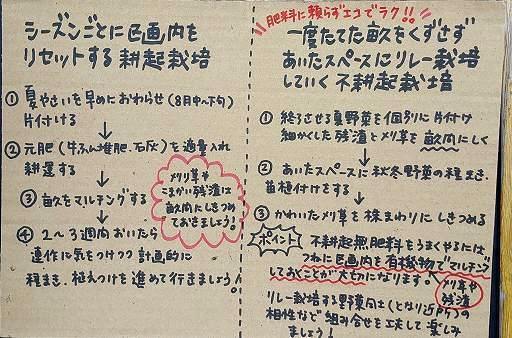 シーズンごとに区画内を
リセットする耕起栽培
① 夏やさいを早めにおわらせ(8月中〜下旬)
片付ける
② 元肥(牛ふん堆肥、石灰)を適量入れ
耕運する
③ 畝をマルチングする
④ 2〜3週間おいたら
連作に気をつけつつ計画的に
種まき、植えつけを進めて行きましょう!
メリ草や
こまかい残渣は
畝間にしきつめ
ておきましょう!
肥料に頼らずエコでラク!!
一度たてた畝をくずさず
あいたスペースにリレー栽培
していく不耕起栽培
① 終了させる夏野菜を個別に片付け
細かくした残渣とメリ草を畝間にしく
② あいたスペースに秋冬野菜の種まき、
苗植付けをする
③ かわいたメリ草を株まわりにしきつめる
ポイント
不耕起無肥料をうまくやるには
つねに区画内を有機物でマルチング
しておくことが大切になります。
メリ草や
残渣
リレー栽培する野菜同士(となり近所)の
相性など組み合せを工夫して楽しみ
ましょう!